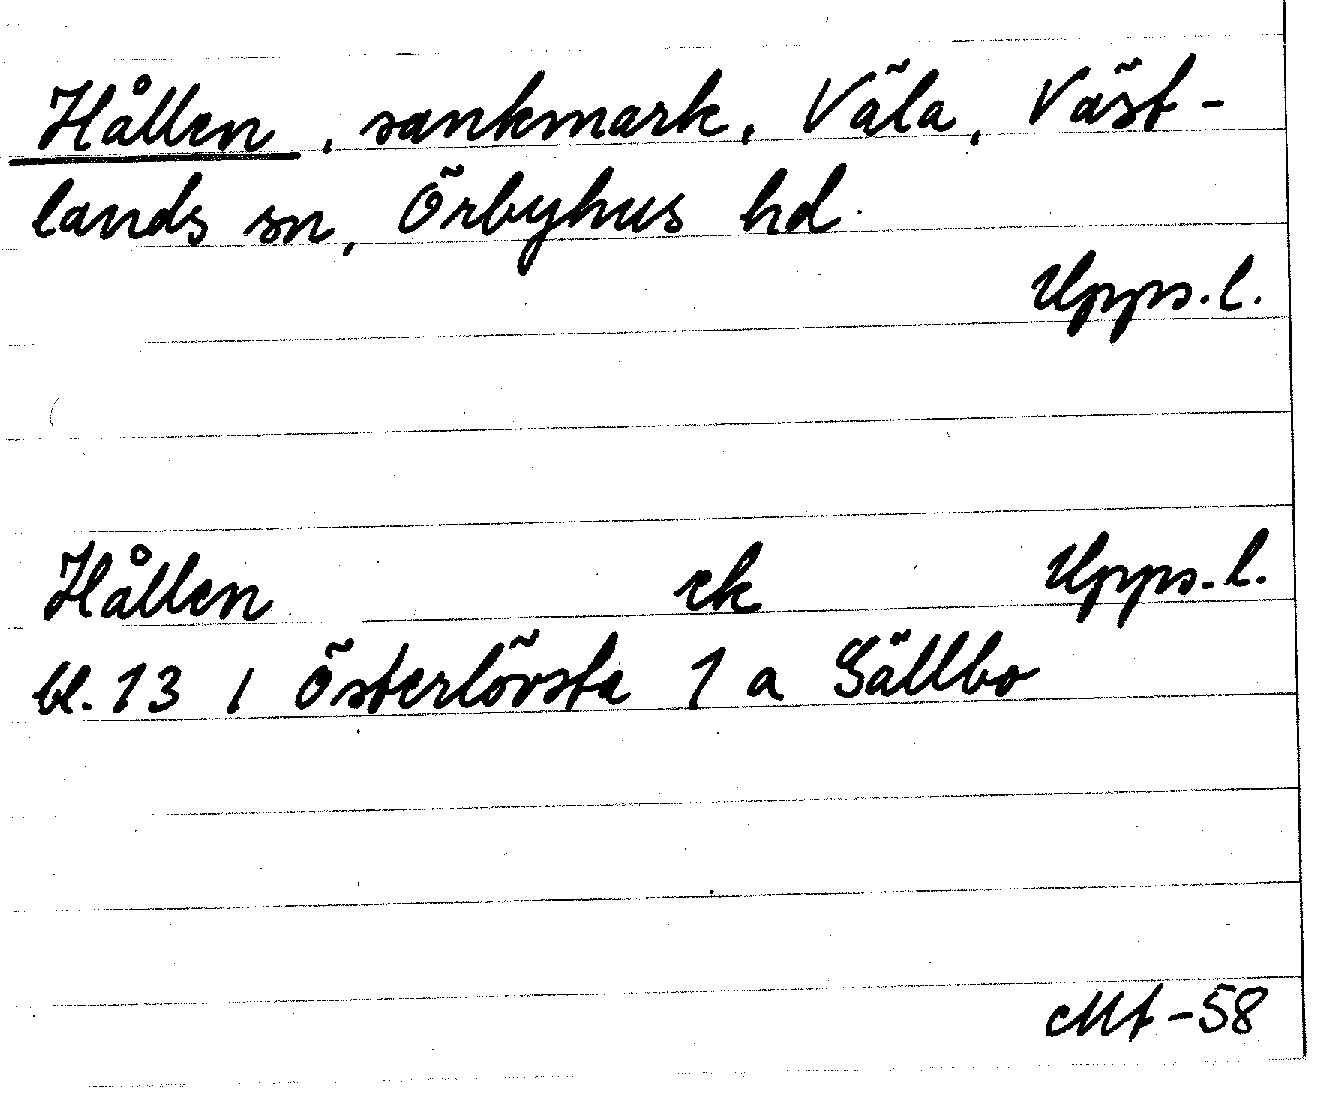 Hållen, sankmark, Väla, Väst-
lands sn, Örbyhus hd.
Upps.l.
Hållen ek Upps.l.
bl. 13 / Österlövsta 1 a Sällbo
Mt -58